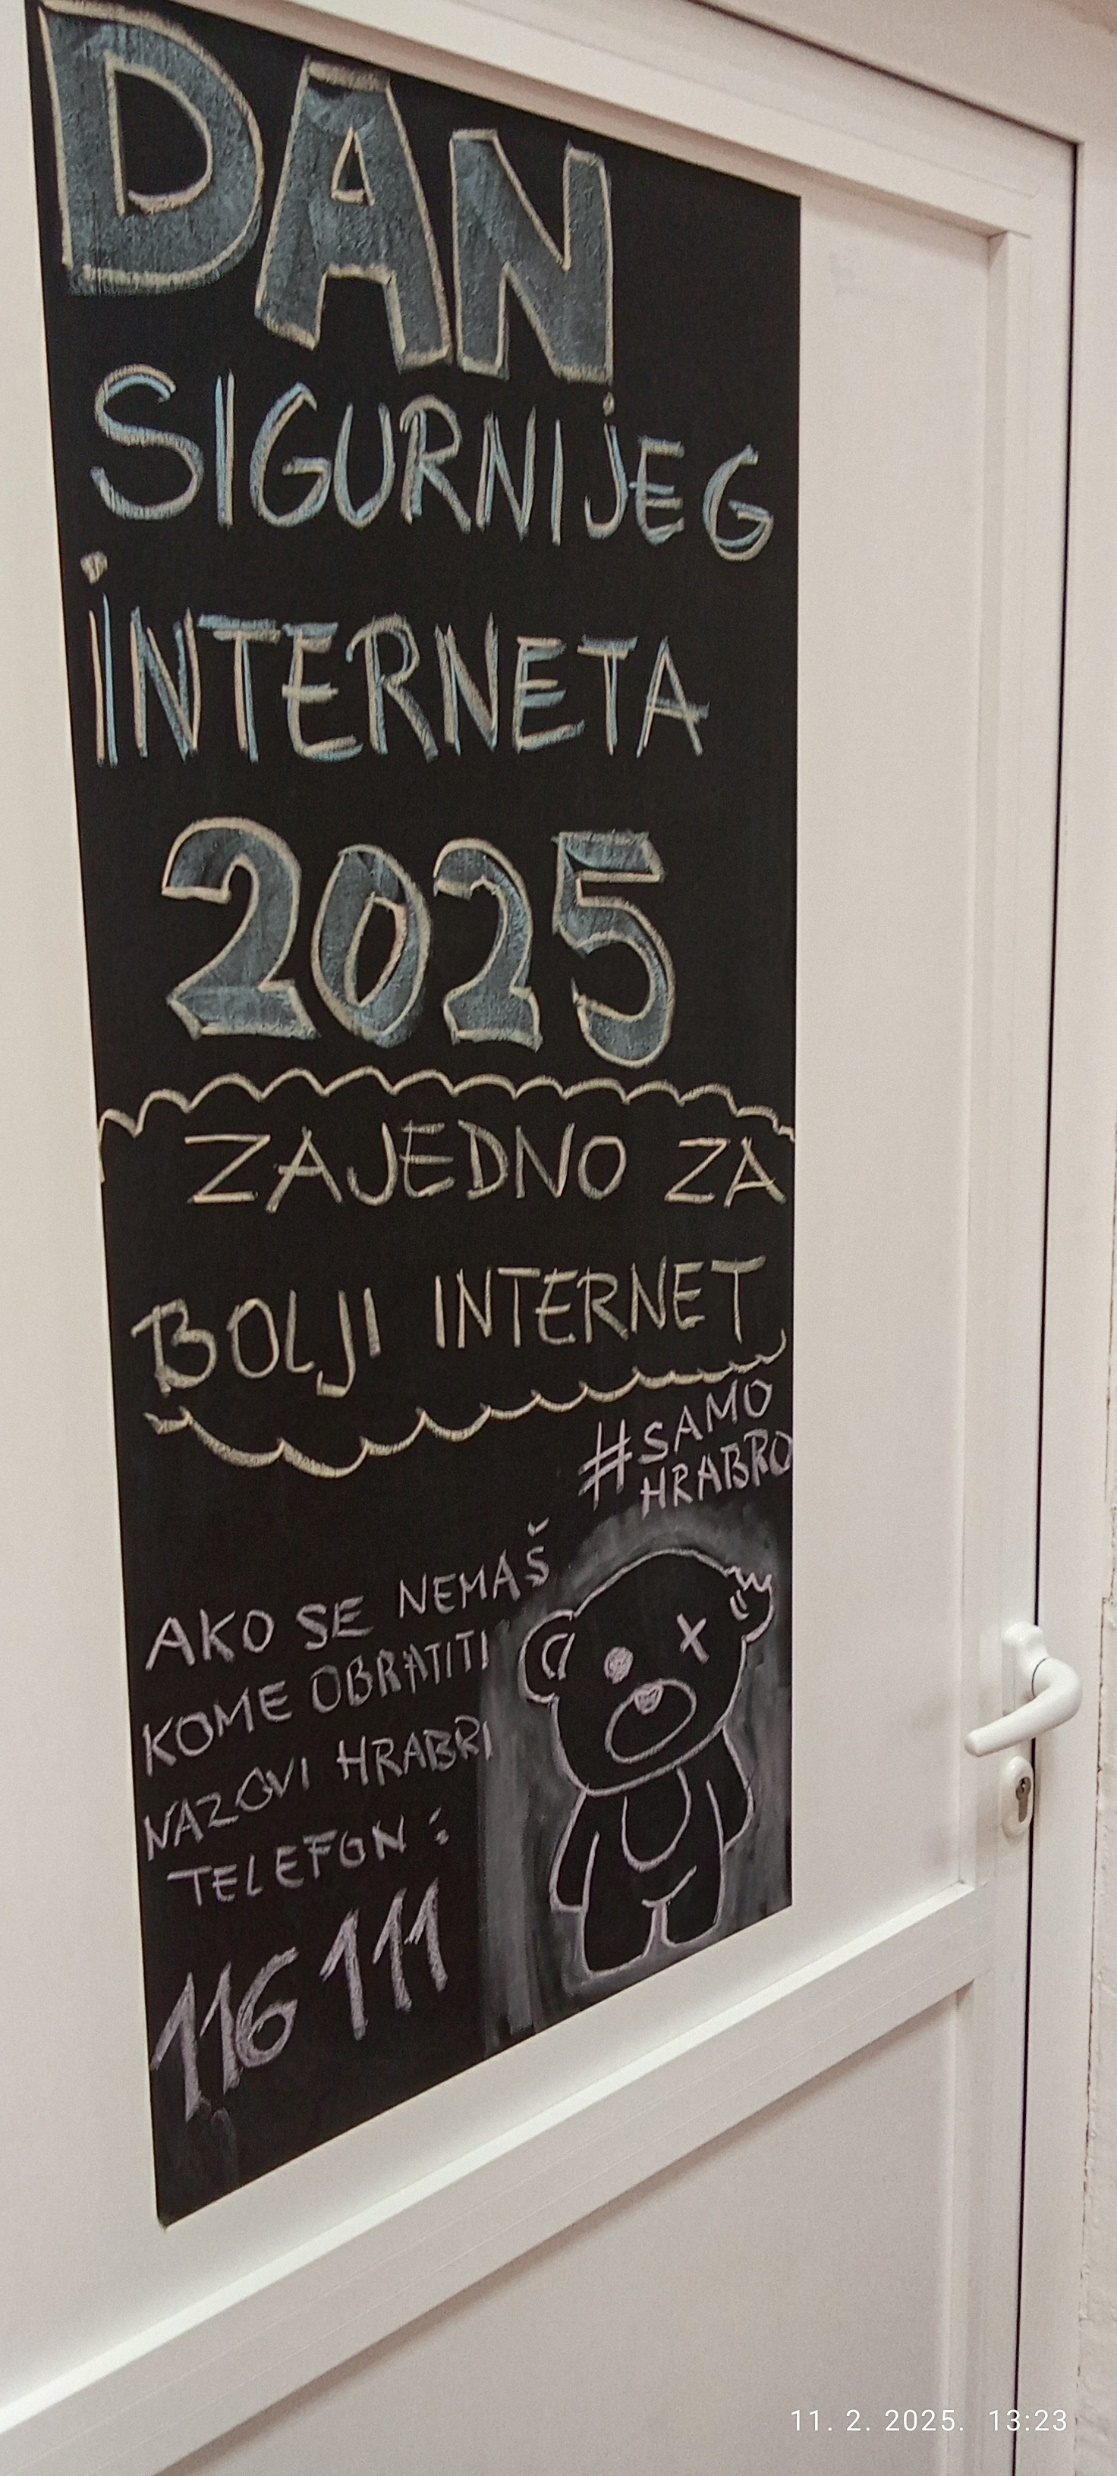 DAN
SIGURNIJEG
INTERNETA
2025
ZAJEDNO ZA
BOLJI INTERNET
#SAMO
HRABRO
AKO SE NEMAŠ
KOME OBRATITI
NAZOVI HRABRI
TELEFON:
116 111
11. 2. 2025. 13:23